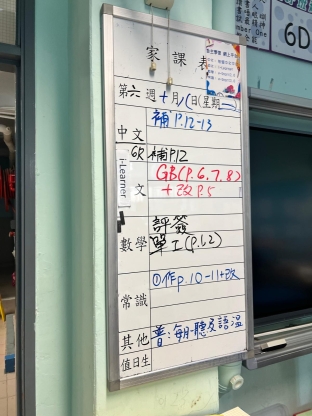 家課表
第六週十月八日(星期二)
補P.12-13
中文
6R 補P.12
i-Learner
GB(P.6.7.8)
文
+改P.5
評簽
數學
單工(p.1,2)
①作p.10-11+改
常識
其他
普:每月一聽及語溫
值日生
6D